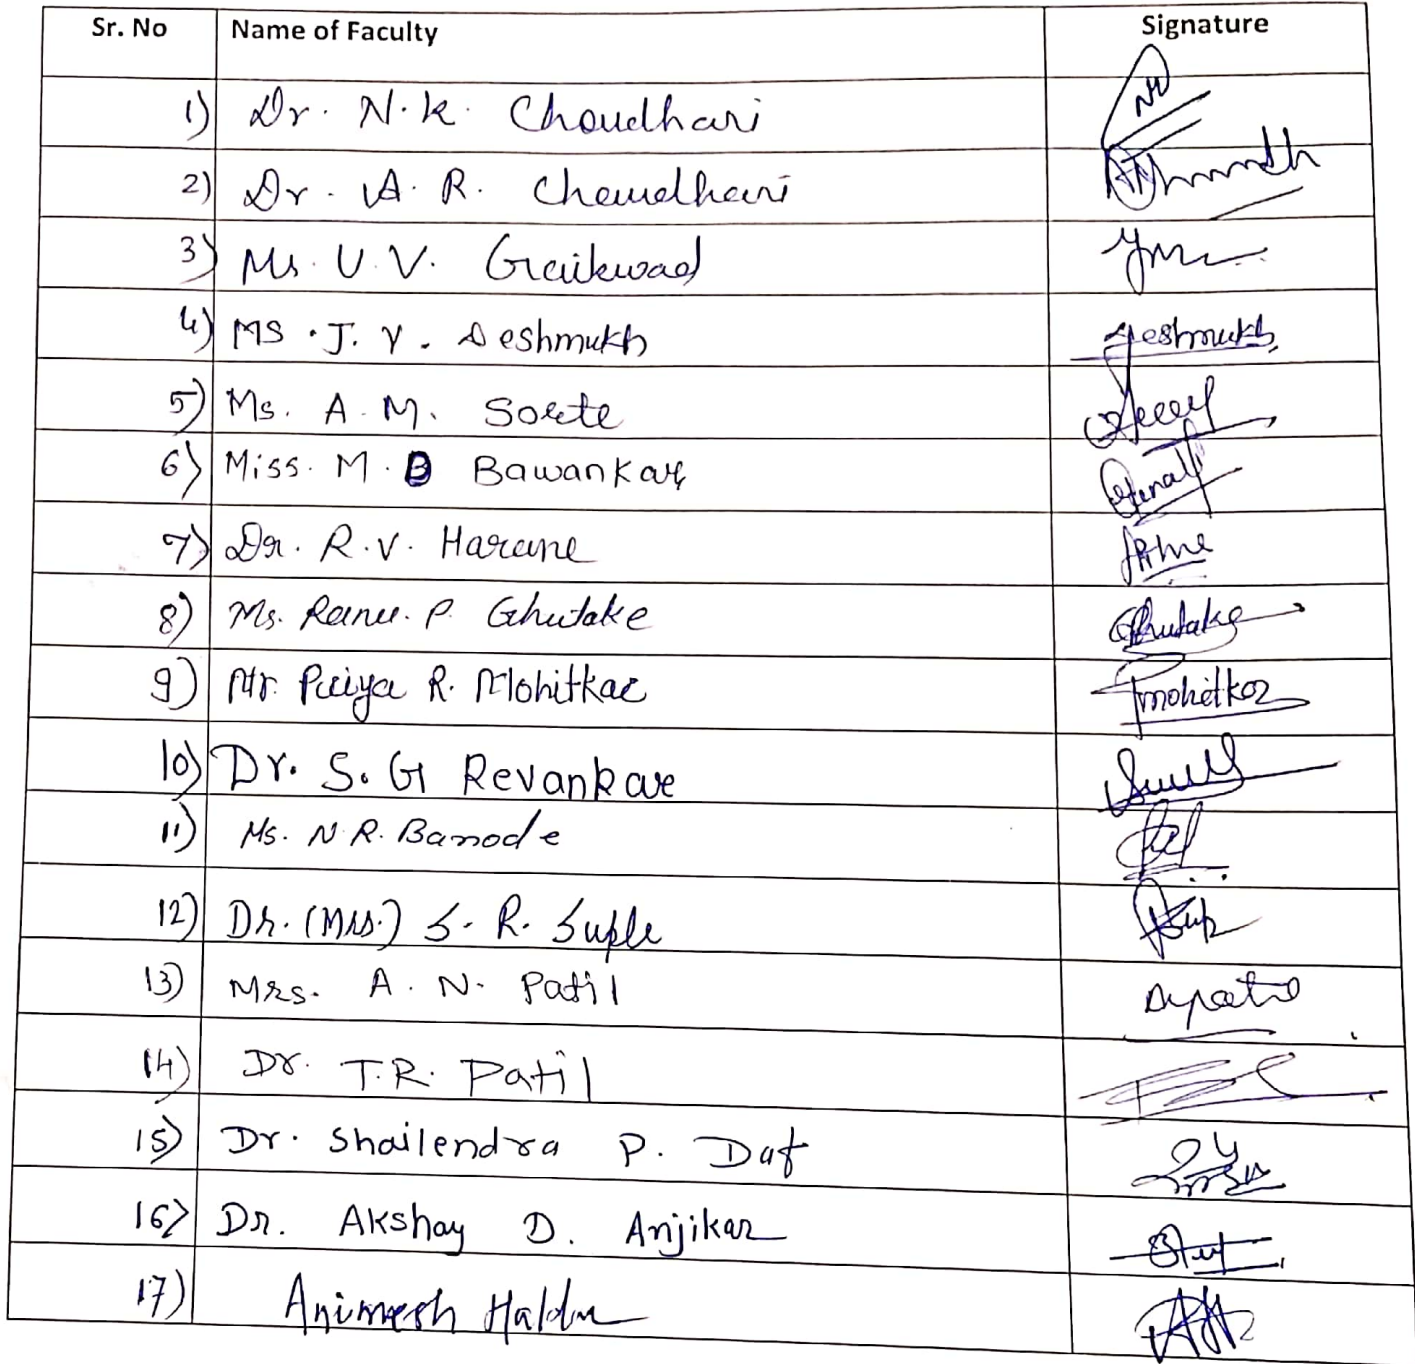 Sr. No Name of Faculty Signature
1) Dr. N.K. Choudhari
2) Dr. A. R. Chaudhari
3) Ms. U. V. Gaikwad
4) MS. J. Y. Deshmukh Deshmukh
5) Ms. A. M. Sorte
6) Miss. M. B Bawankar
7) Dr. R.V. Harane
8) Ms. Ranu. P. Ghutake Ghutake
9) Mr. Priya R. Mohitkar Pmohitkar
10) Dr. S. G Revankar
11) Ms. N.R. Barode
12) Dr. (Mrs.) S. R. Suple
13) Mrs. A. N. Patil Aypatil
14) Dr. T.R. Patil
15) Dr. Shailendra P. Daf
16) Dr. Akshay D. Anjikar
17) Animesh Halder